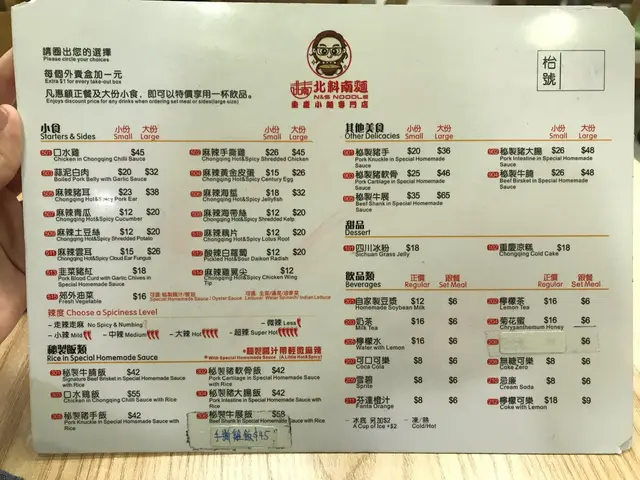 請圈出您的選擇
Please circle your choices
每個外賣盒加一元
Extra $1 for every take-out box
凡惠顧正餐及大份小食，即可以特價享用一杯飲品。
Enjoys discount price for any drinks when ordering set meal or sides(large size)
北斜南麵
N&S NOODLE
重慶小麵專門店
枱號
小食 小份 大份 小份 大份
Starters & Sides Small Large Small Large
口水雞 $45
Chicken in Chongqing Chilli Sauce
麻辣手撕雞 $26 $45
Chongqing Hot&Spicy Shredded Chicken
蒜泥白肉 $20 $32
Boiled Pork Belly with Garlic Sauce
麻辣黃金皮蛋 $15 $26
Chongqing Hot&Spicy Century Egg
麻辣豬耳 $23 $38
Chongqing Hot&Spicy Pork Ear
麻辣海蜇 $18 $32
Chongqing Hot&Spicy Jellyfish
麻辣青瓜 $12 $20
Chongqing Hot&Spicy Cucumber
麻辣海帶絲 $12 $20
Chongqing Hot&Spicy Shredded Kelp
麻辣土豆絲 $12 $20
Chongqing Hot&Spicy Shredded Potato
麻辣藕片 $12 $20
Chongqing Hot&Spicy Lotus Root
麻辣雲耳 $15 $26
Chongqing Hot&Spicy Cloud Ear Fungus
酸辣白蘿蔔 $12 $20
Pickled Hot&Sour Daikon Radish
韮菜豬紅 $18
Pork Blood Curd with Garlic Chives in Special Homemade Sauce
麻辣雞翼尖 $12
Chongqing Hot&Spicy Chicken Wing Tip
郊外油菜 $16
Fresh Vegetable
Special Homemade Sauce / Oyster Sauce
Lettuce/ Water Spinach/ Indian Lettuce
辣度 Choose a Spiciness Level
走辣走麻 No Spicy & Numbing
微辣 Less
小辣 Mild
中辣 Medium
大辣 Hot
超辣 Super Hot
秘製飯類
Rice in Special Homemade Sauce
*With Special Homemade Sauce (A Little Hot&Spicy)
秘製牛腩飯 $42
Signature Beef Brisket in Special Homemade Sauce with Rice
秘製豬軟骨飯 $42
Pork Cartilage in Special Homemade Sauce with Rice
口水鷄飯 $55
Chicken in Chongqing Chilli Sauce with Rice
秘製豬大腸飯 $42
Pork Intestine in Special Homemade Sauce with Rice
秘製豬手飯 $42
Pork Knuckle in Special Homemade Sauce with Rice
秘製牛展飯 $58
Beef Shank in Special Homemade Sauce with Rice
其他美食 小份 大份 小份 大份
Other Delicacies Small Large Small Large
秘製豬手 $20 $36
Pork Knuckle in Special Homemade Sauce
秘製豬大腸 $26 $48
Pork Intestine in Special Homemade Sauce
秘製豬軟骨 $25 $46
Pork Cartilage in Special Homemade Sauce
秘製牛腩 $26 $48
Beef Brisket in Special Homemade Sauce
秘製牛展 $35 $65
Beef Shank in Special Homemade Sauce
甜品
Dessert
四川冰粉 $18
Sichuan Grass Jelly
重慶涼糕 $18
Chongqing Cold Cake
飲品類 正價 跟餐 正價 跟餐
Beverages Regular Set Meal Regular Set Meal
自家製豆漿 $12 $6
Homemade Soybean Milk
檸檬茶 $16 $6
Lemon Tea
奶茶 $16 $6
Milk Tea
菊花蜜 $16 $6
Chrysanthemum Honey
檸檬水 $16 $6
Water with Lemon
$6
可口可樂 $8 $6
Coca Cola
無糖可樂 $8 $6
Coke Zero
雪碧 $8 $6
Sprite
忌廉 $8 $6
Cream Soda
芬達橙汁 $8 $6
Fanta Orange
檸檬可樂 $18 $9
Coke with Lemon
冰底 另加$2
A Cup of Ice +$2
凍/熱
Cold/Hot